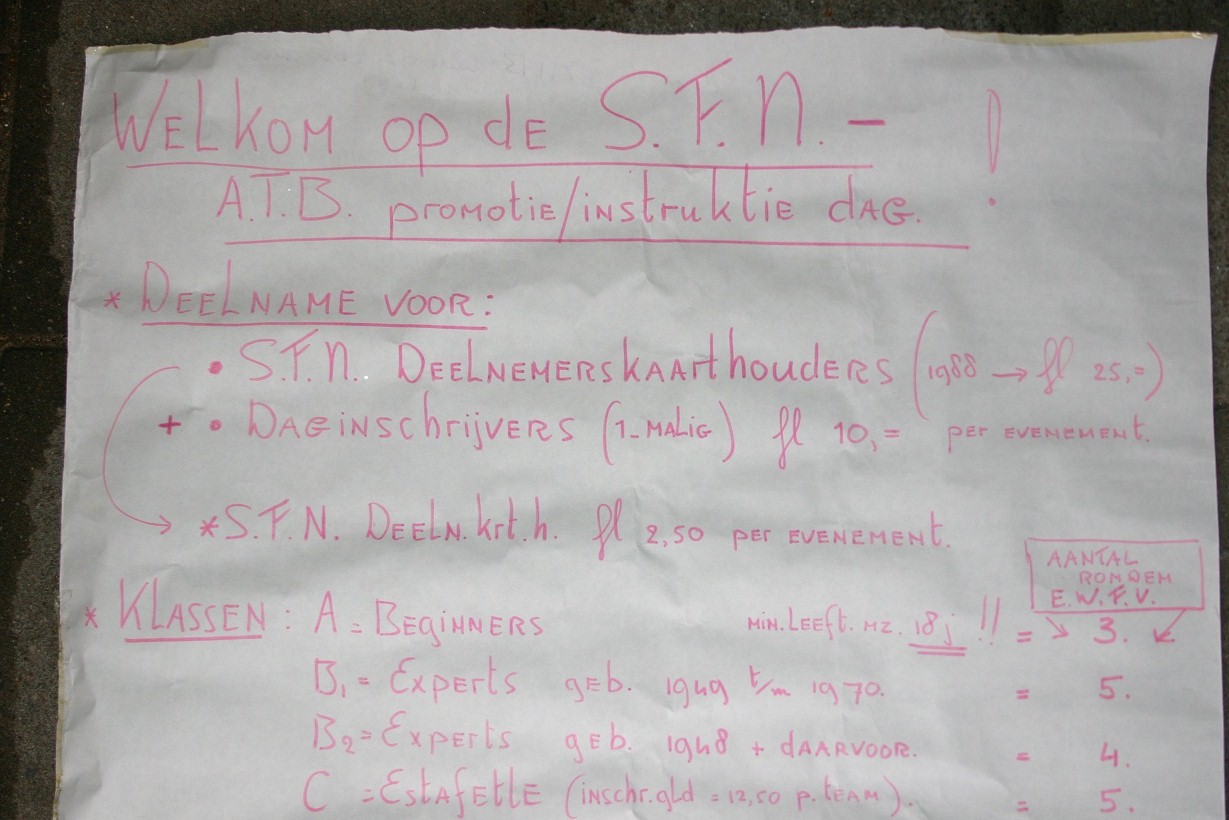 WELKOM OP dE S.F.N. - !
A.T.B. promotie/instruktie dag.
* DEELNAME VOOR:
• S.F.N. DEELNEMERSkAArthoudERS (1988 → fl 25,=)
+ • DAGinschrijvERS (1-MALIG) fl 10,= per EVENEMENt.
→ *S.F.N. DEELN.krt.h. fl 2,50 per EVENEMENt.
AANTAL
RONDEN
E.W.F.V.
* KLASSEN: A = BEGINNERS MIN.LEEFt. MZ. 18 j !! = ↘ 3. ↙
B1 = Experts gEb. 1949 t/m 1970. = 5.
B2 = Experts gEb. 1948 + dAARVOOR. = 4.
C = EstAfEttE (inschr.gld = 12,50 p. tEAM). = 5.